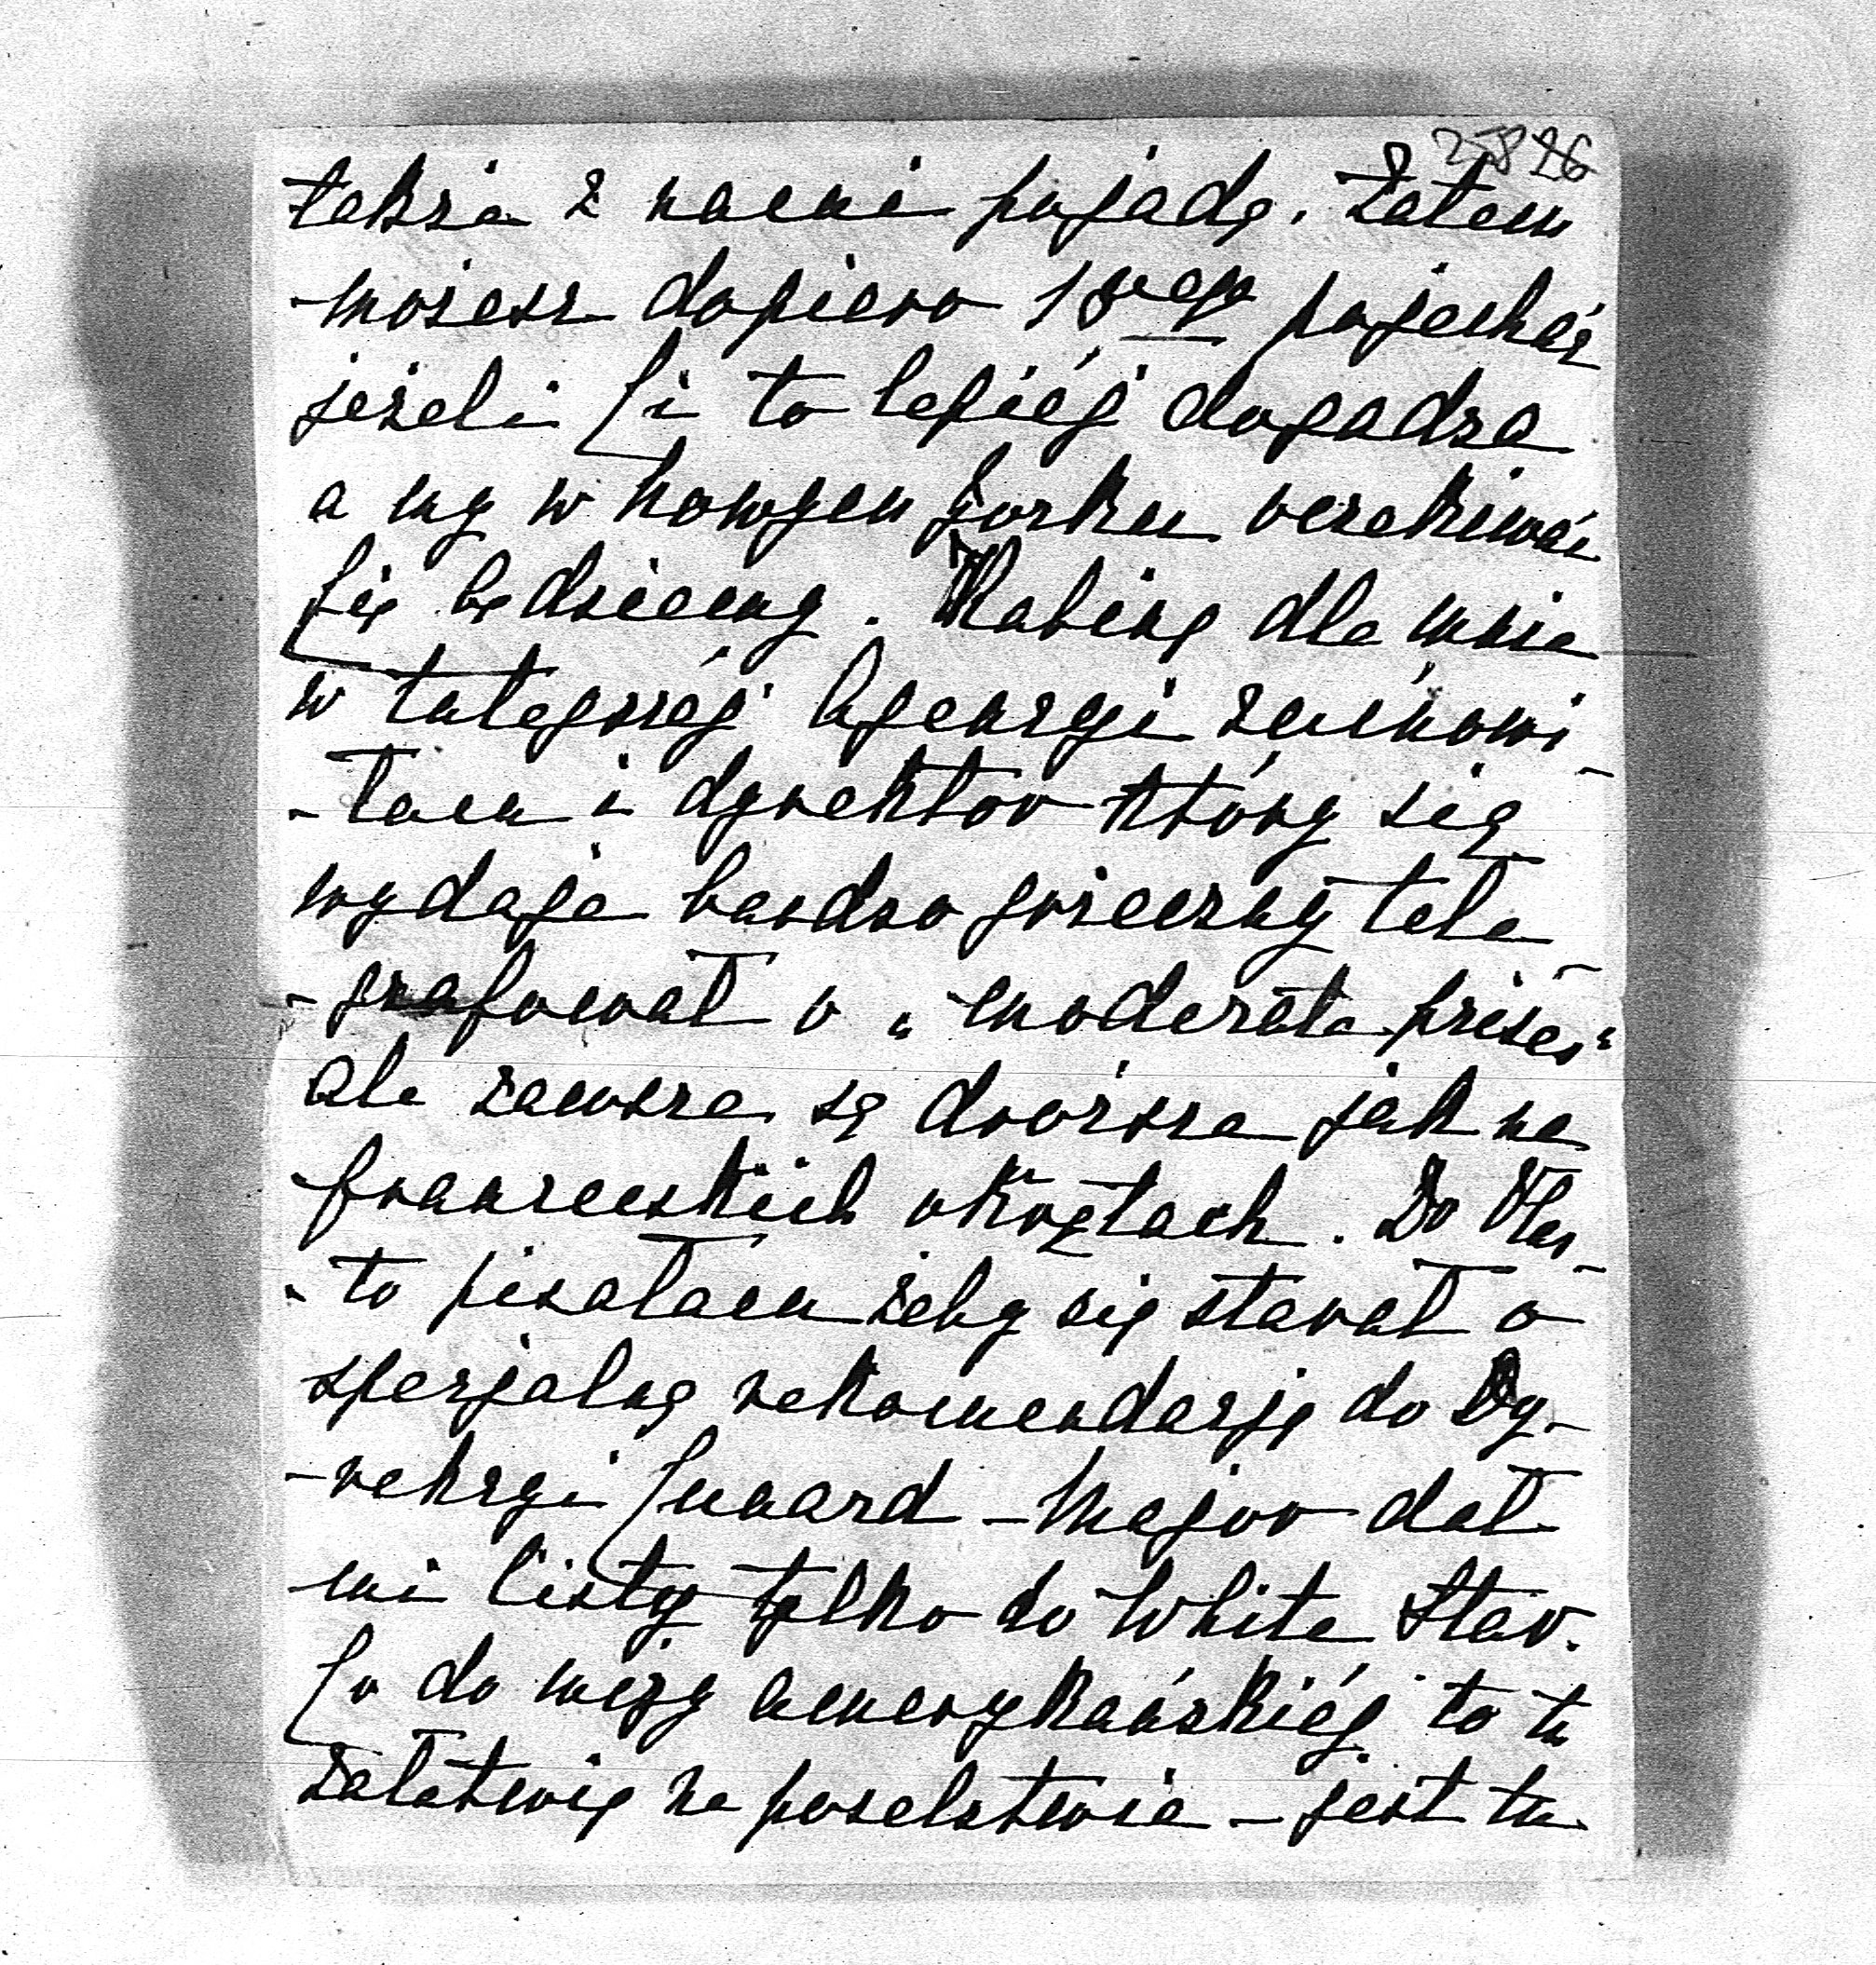 25826
także z nami pojadę. Zatem
możesz dopiero 18ego pojechać
jeżeli Ci to lepiéj dogadza
a my w Nowym Jorku oczekiwać
Cię będziemy. Kabinę dla mnie
w tutejszéj Agencyi zamówi-
-łam i dyrektor który się
wydaje bardzo grzeczny tele-
-grafował o "moderate prices"
ale zawsze są droższe jak na
francuskich okrętach. Do
-to pisałam żeby się starał o
specjalną rekomendację do Dy-
-rekcyi Cunard – Major dał
mi listy tylko do White Star.
Co do wizy amerykańskiéj to tu
załatwię na poselstwie – jest tu